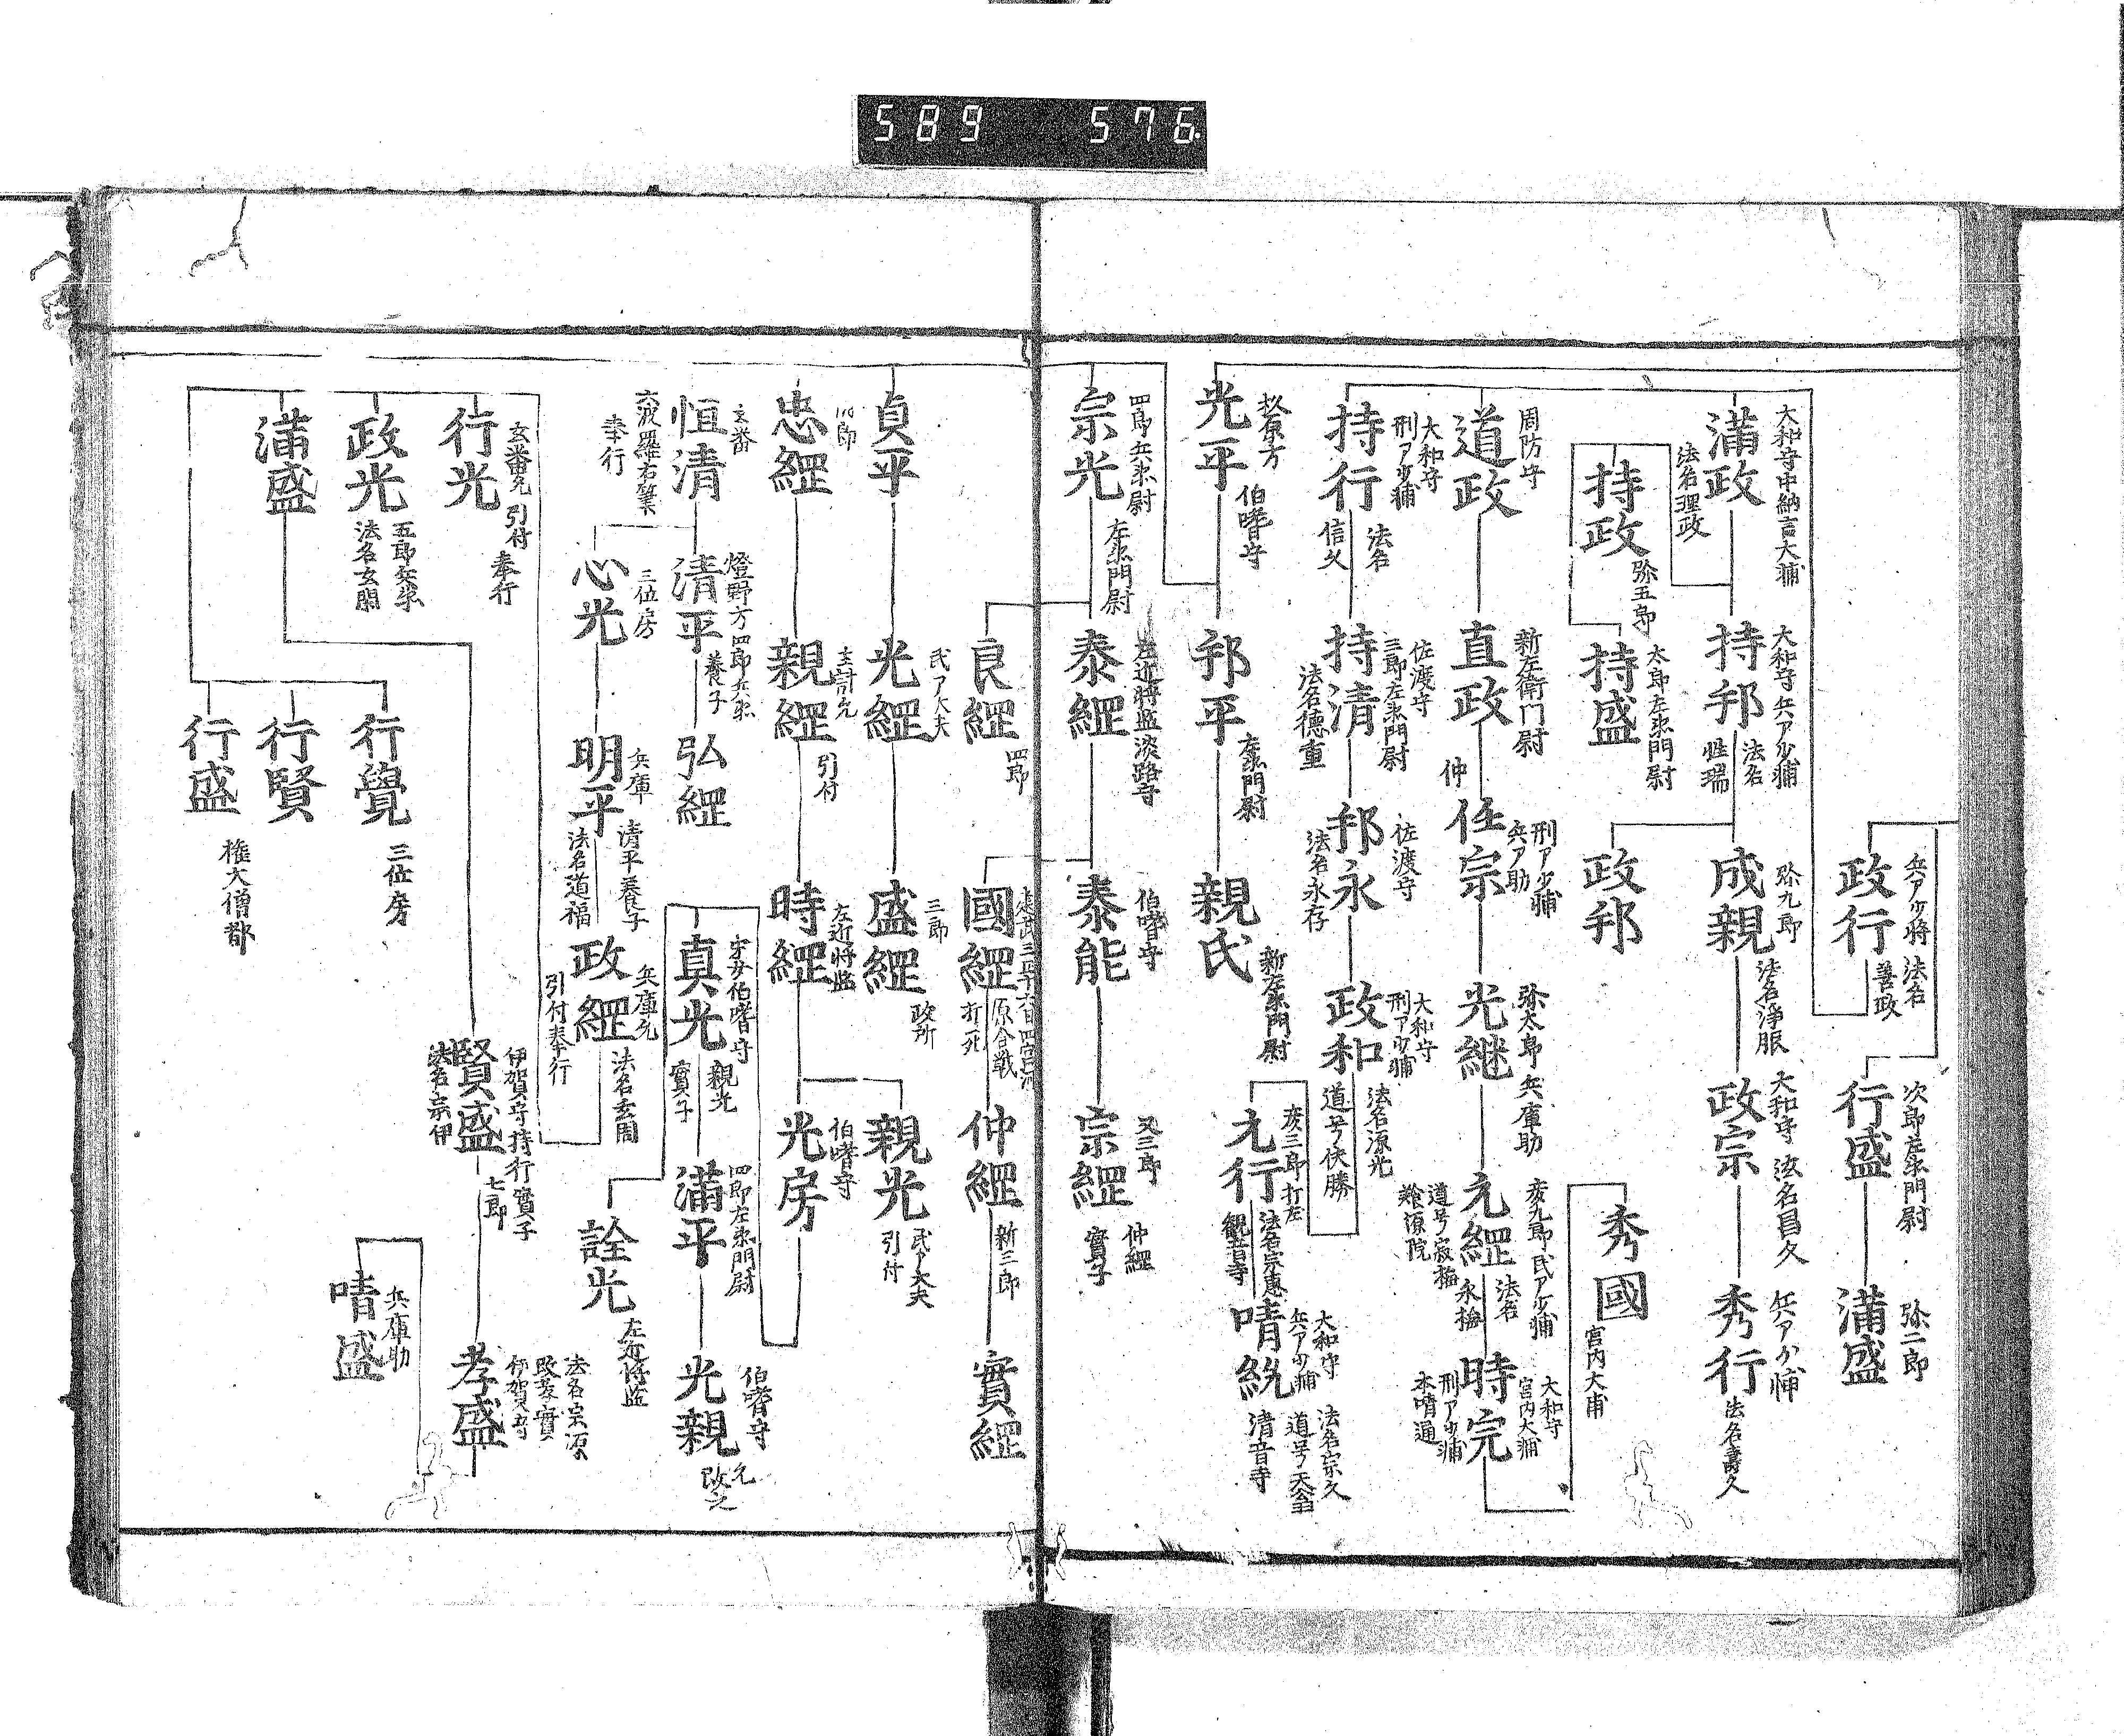 589 576.
兵ア少将
政行
法名
善政
次郎左衛門尉
行盛
弥二郎
満盛
大和守中納言大輔
満政
法名理政
大和守兵ア少輔
持邦
法名
性瑞
弥九郎
成親
法名浄眼
大和守
法名昌久
政宗
兵ア少輔
秀行
法名壽久
持政
弥五郎
太郎左衛門尉
持盛
政邦
秀國
宮内大甫
周防守
道政
新左衛門尉
直政
仲
刑ア少輔
兵ア助
任宗
弥太郎
兵庫助
光継
彦九郎民ア少輔
元經
道号寂梅
法名
永梅
大和守
宮内大輔
時完
刑ア少輔
本晴通
大和守
刑ア少輔
持行
法名
信久
佐渡守
三郎左衛門尉
持清
法名徳重
佐渡守
邦永
法名永存
大和守
刑ア少輔
政和
法名源光
道号佚勝
彦三郎
元行
法名宗恵
観音寺
大和守
兵ア少輔
晴統
法名宗久
道号天翁
清音寺
光平
伯耆守
邦平
左衛門尉
親氏
新左衛門尉
四郎兵衛尉
宗光
左衛門尉
左近将監淡路守
泰經
伯耆守
泰能
又三郎
宗經
仲經
實子
良經
四郎
國經
原合戦
打死
仲經
新三郎
實經
貞平
民ア大夫
光經
三郎
盛經
政所
親光
民ア大夫
引付
忠經
主計允
親經
引付
左近将監
時經
伯耆守
光房
玄番
恒清
六波羅右筆
奉行
清平
四郎兵衛
養子
弘經
伯耆守
真光
親光
實子
四郎左衛門尉
満平
伯耆守
光親
元
改之
三位房
心光
兵庫
明平
清平養子
法名道福
兵庫允
政經
法名玄周
引付奉行
詮光
左近将監
玄番允
行光
引付
奉行
政光
五郎兵衛
法名玄開
満盛
伊賀守持行實子
賢盛
法名宗伊
七郎
孝盛
法名宗源
伊賀守
兵庫助
晴盛
行覺
三位房
行賢
行盛
権大僧都